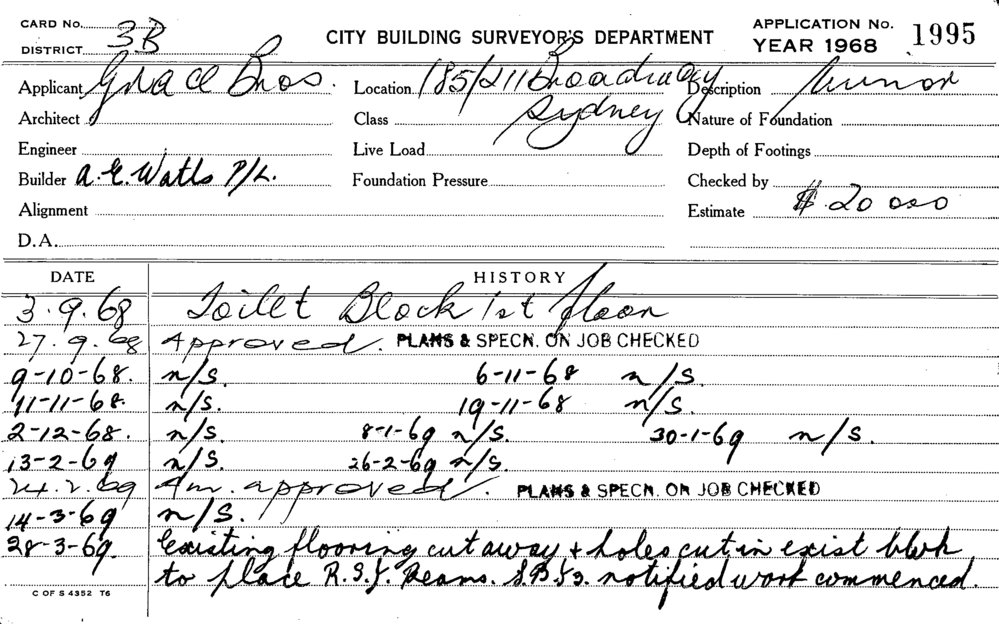 CARD No. 3B
DISTRICT
CITY BUILDING SURVEYOR'S DEPARTMENT
APPLICATION No. 1995
YEAR 1968
Applicant Grace Bros. Location 185/211 Broadway Description Minor
Architect Class Sydney Nature of Foundation
Engineer Live Load Depth of Footings
Builder A.E. Watts P/L. Foundation Pressure Checked by
Alignment Estimate $ 20 000
D.A.
DATE HISTORY
3.9.68 Toilet Block 1st floor
27.9.68 Approved. PLANS & SPECN. ON JOB CHECKED
9-10-68. n/s. 6-11-68 n/s.
11-11-68. n/s. 19-11-68 n/s.
2-12-68. n/s. 8-1-69 n/s. 30-1-69 n/s.
13-2-69 n/s. 26-2-69 n/s.
24.2.69 Am. approved. PLANS & SPECN. ON JOB CHECKED
14-3-69 n/s.
28-3-69. Existing flooring cut away + holes cut in exist bwk
to place R.S.J. Beams. notified work commenced.
C OF S 4352 T6